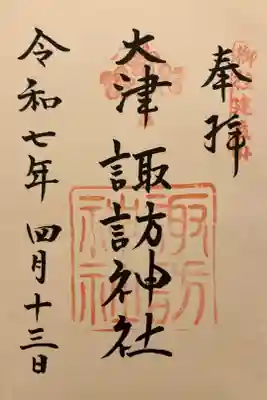 奉拝
大津
諏訪神社
諏訪
神社
令和七年 四月十三日